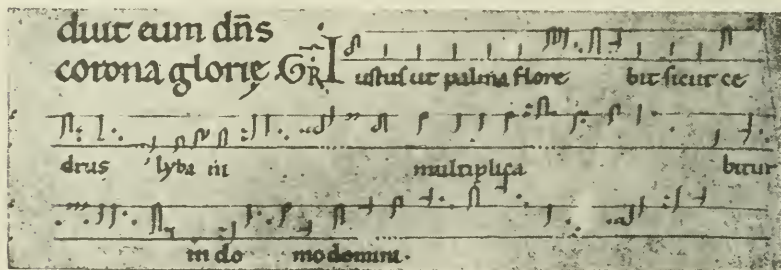 duit eum dñs
corona glorię GR Iustus ut palma flore bit sicut ce
drus lyba in multiplica bitur
in do mo domini.